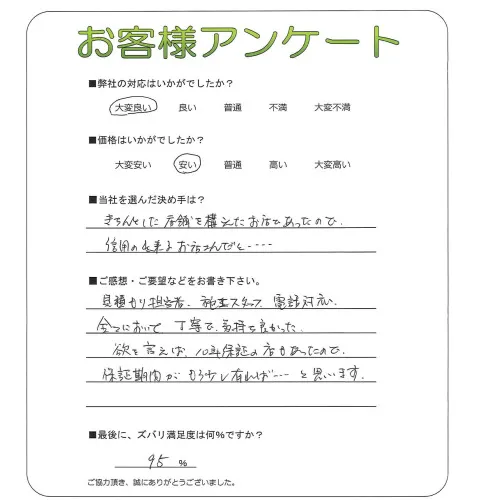 お客様アンケート
■弊社の対応はいかがでしたか？
大変良い 良い 普通 不満 大変不満
■価格はいかがでしたか？
大変安い 安い 普通 高い 大変高い
■当社を選んだ決め手は？
きちんとした店舗を構えたお店であったので、
信用の出来るお店さんだと・・・・
■ご感想・ご要望などをお書き下さい。
見積もり担当者、施工スタッフ、電話対応、
全てにおいて 丁寧で、気持ち良かった。
欲を言えば、10年保証の店もあったので、
保証期間が もう少し有れば・・・と思います。
■最後に、ズバリ満足度は何%ですか？
95 %
ご協力頂き、誠にありがとうございました。